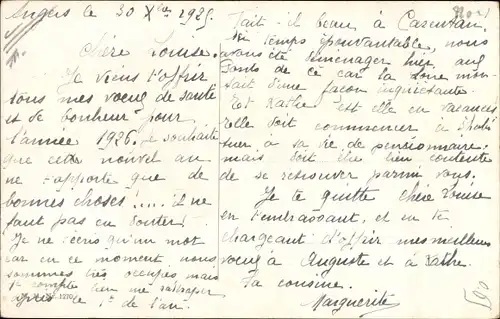 Angers le 30 Xbre 1925.
Chère Louise,
Je viens t'offrir
tous mes voeux de santé
et de bonheur pour
l'année 1926. Je souhaite
que cette nouvel an
ne t'apporte que de
bonnes choses!.... Il ne
faut pas en douter!
Je ne t'écris qu'un mot
car en ce moment nous
sommes très occupés mais
je compte bien me rattraper
après le 1er de l'an.
Fait-il beau à Carentan.
Ici temps épouvantable, nous
avons été déménager hier aux
Ponts de Cé car la Loire mon-
tait d'une façon inquiétante.
Et Kathe est elle en vacances
Elle doit commencer à s'habi-
tuer à sa vie de pensionnaire.
mais doit être bien contente
de se retrouver parmi vous.
Je te quitte chère Louise
en t'embrassant, et en te
chargeant d'offrir mes meilleurs
voeux à Auguste et à Kathe.
Ta cousine.
Marguerite